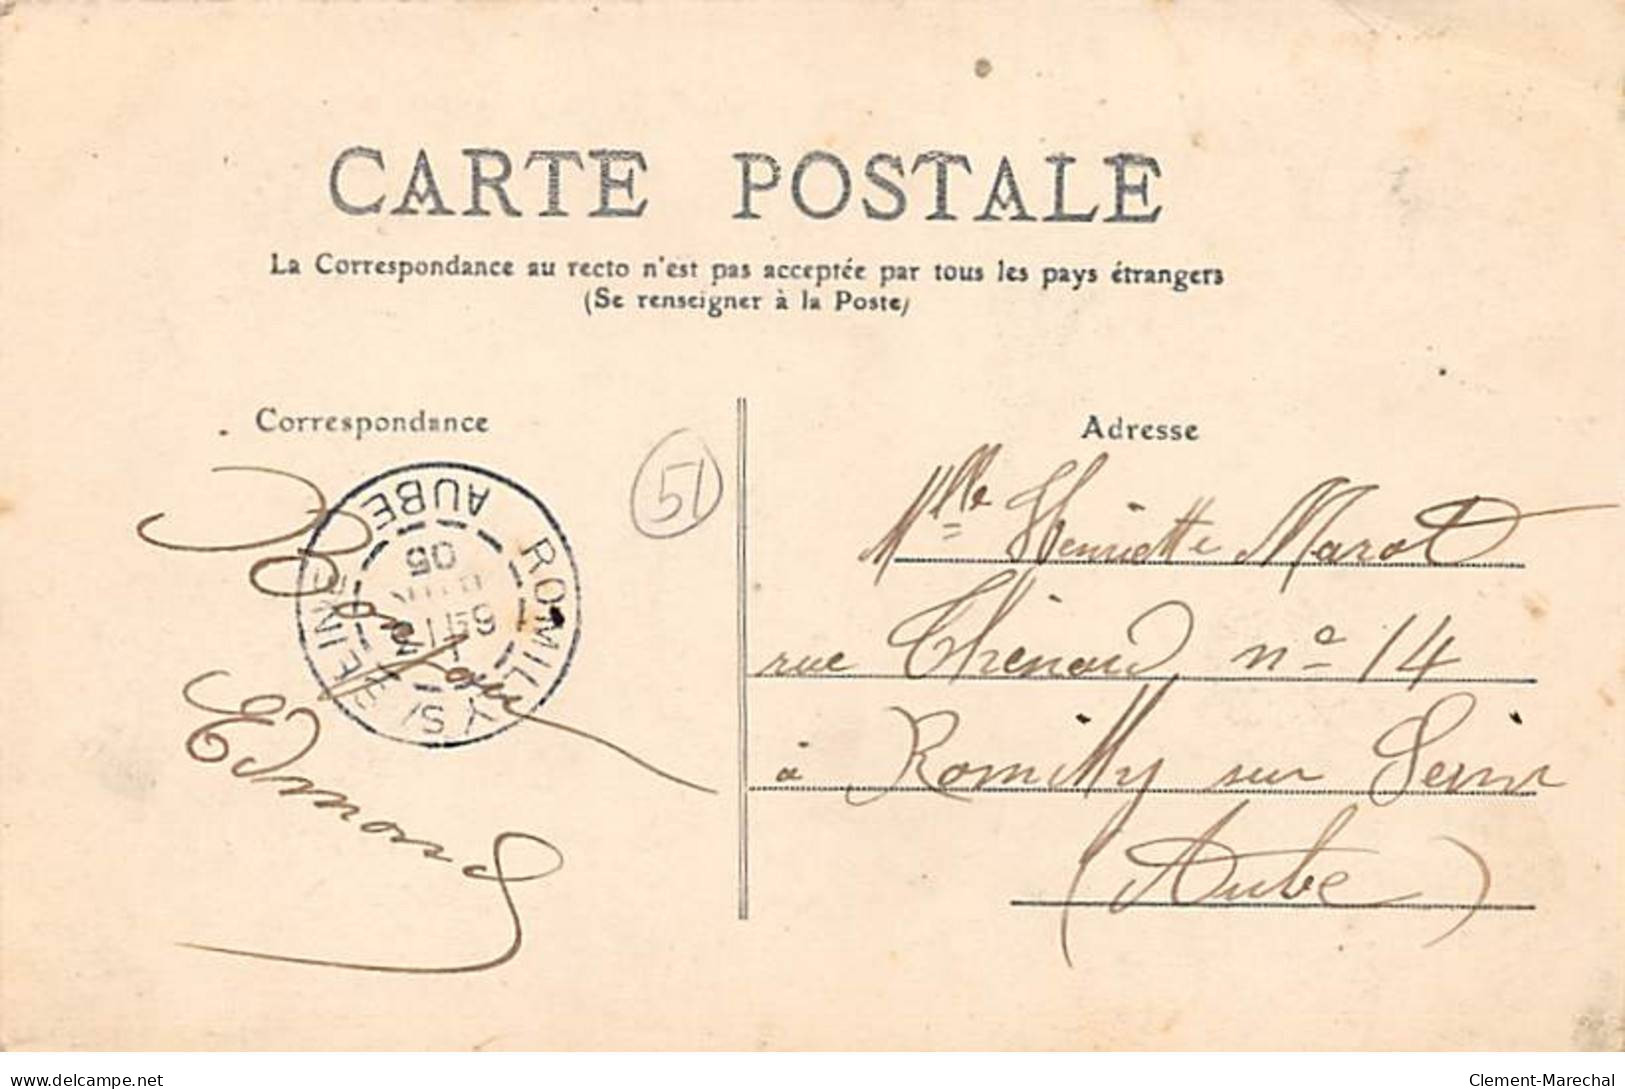 CARTE POSTALE
La Correspondance au recto n'est pas acceptée par tous les pays étrangers
(Se renseigner à la Poste)
Correspondance
51
Adresse
ROMILLY S/ SEINE
AUBE
05
Edmond
Mlle Henriette Marot
rue Thénard no 14
à Romilly sur Seine
(Aube)
www.delcampe.net
Clement-Marechal